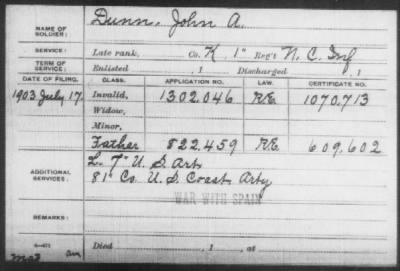 NAME OF SOLDIER: Dunn, John A.
SERVICE: Late rank, Co. K, 1" Reg't N. C. Inf
TERM OF SERVICE: Enlisted , 1 Discharged , 1
DATE OF FILING. CLASS. APPLICATION NO. LAW. CERTIFICATE NO.
1903 July 17. Invalid, 1302.046 R.E. 1070.713
Widow,
Minor,
Father 822.459 R.E. 609.602
ADDITIONAL SERVICES: L. 7" U. S. Art.
81" Co. U. S. Coast Arty
WAR WITH SPAIN
REMARKS:
Died , 1 , at